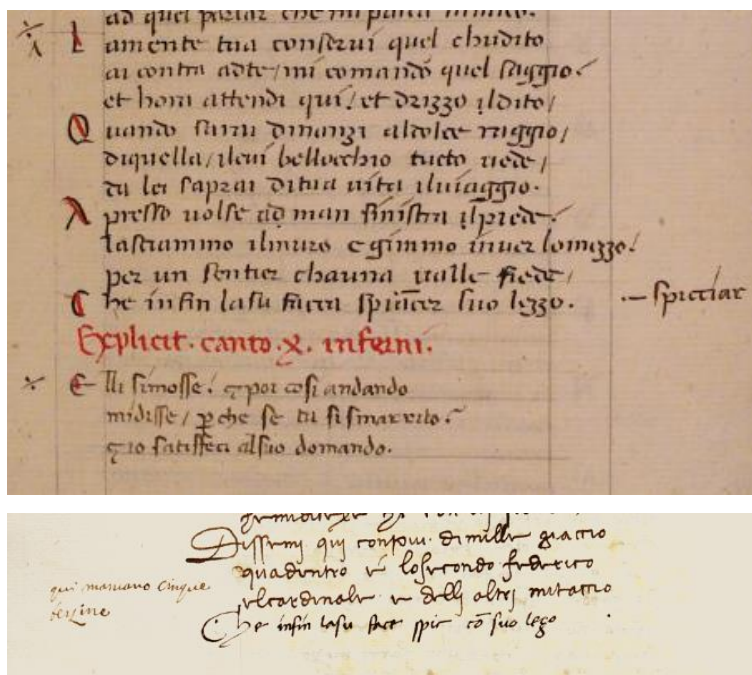 ad quel parlar che mi parea nimico.
La mente tua conservi quel chudito
ai contra adte / mi comando quel saggio.
et hora attendi qui. et drizzo ildito /
Quando sarai dinanzi aldolce raggio /
diquella / ilcui bellocchio tucto uede /
da lei saprai ditua uita iluiaggio.
Apresso uolse ad man sinistra ilpiede.
lasciammo ilmuro e gimmo inuer lomezzo.
per un sentier chauna ualle fiede /
Che infin lasu facea spiacer suo lezzo. .— spicciar
Explicit . canto . x . inferni .
Elli simosse . & poi cosi andando
midisse / ꝑche se tu sismarrito .
& io satisfeci alsuo domando.
Dissemi qui conpoiu. dimille giaccio
quadentro e losecondo federico
elcardinale e delli altri mitaccio
qui mancano cinque
terzine
Che infin lasu face spic cō suo lego